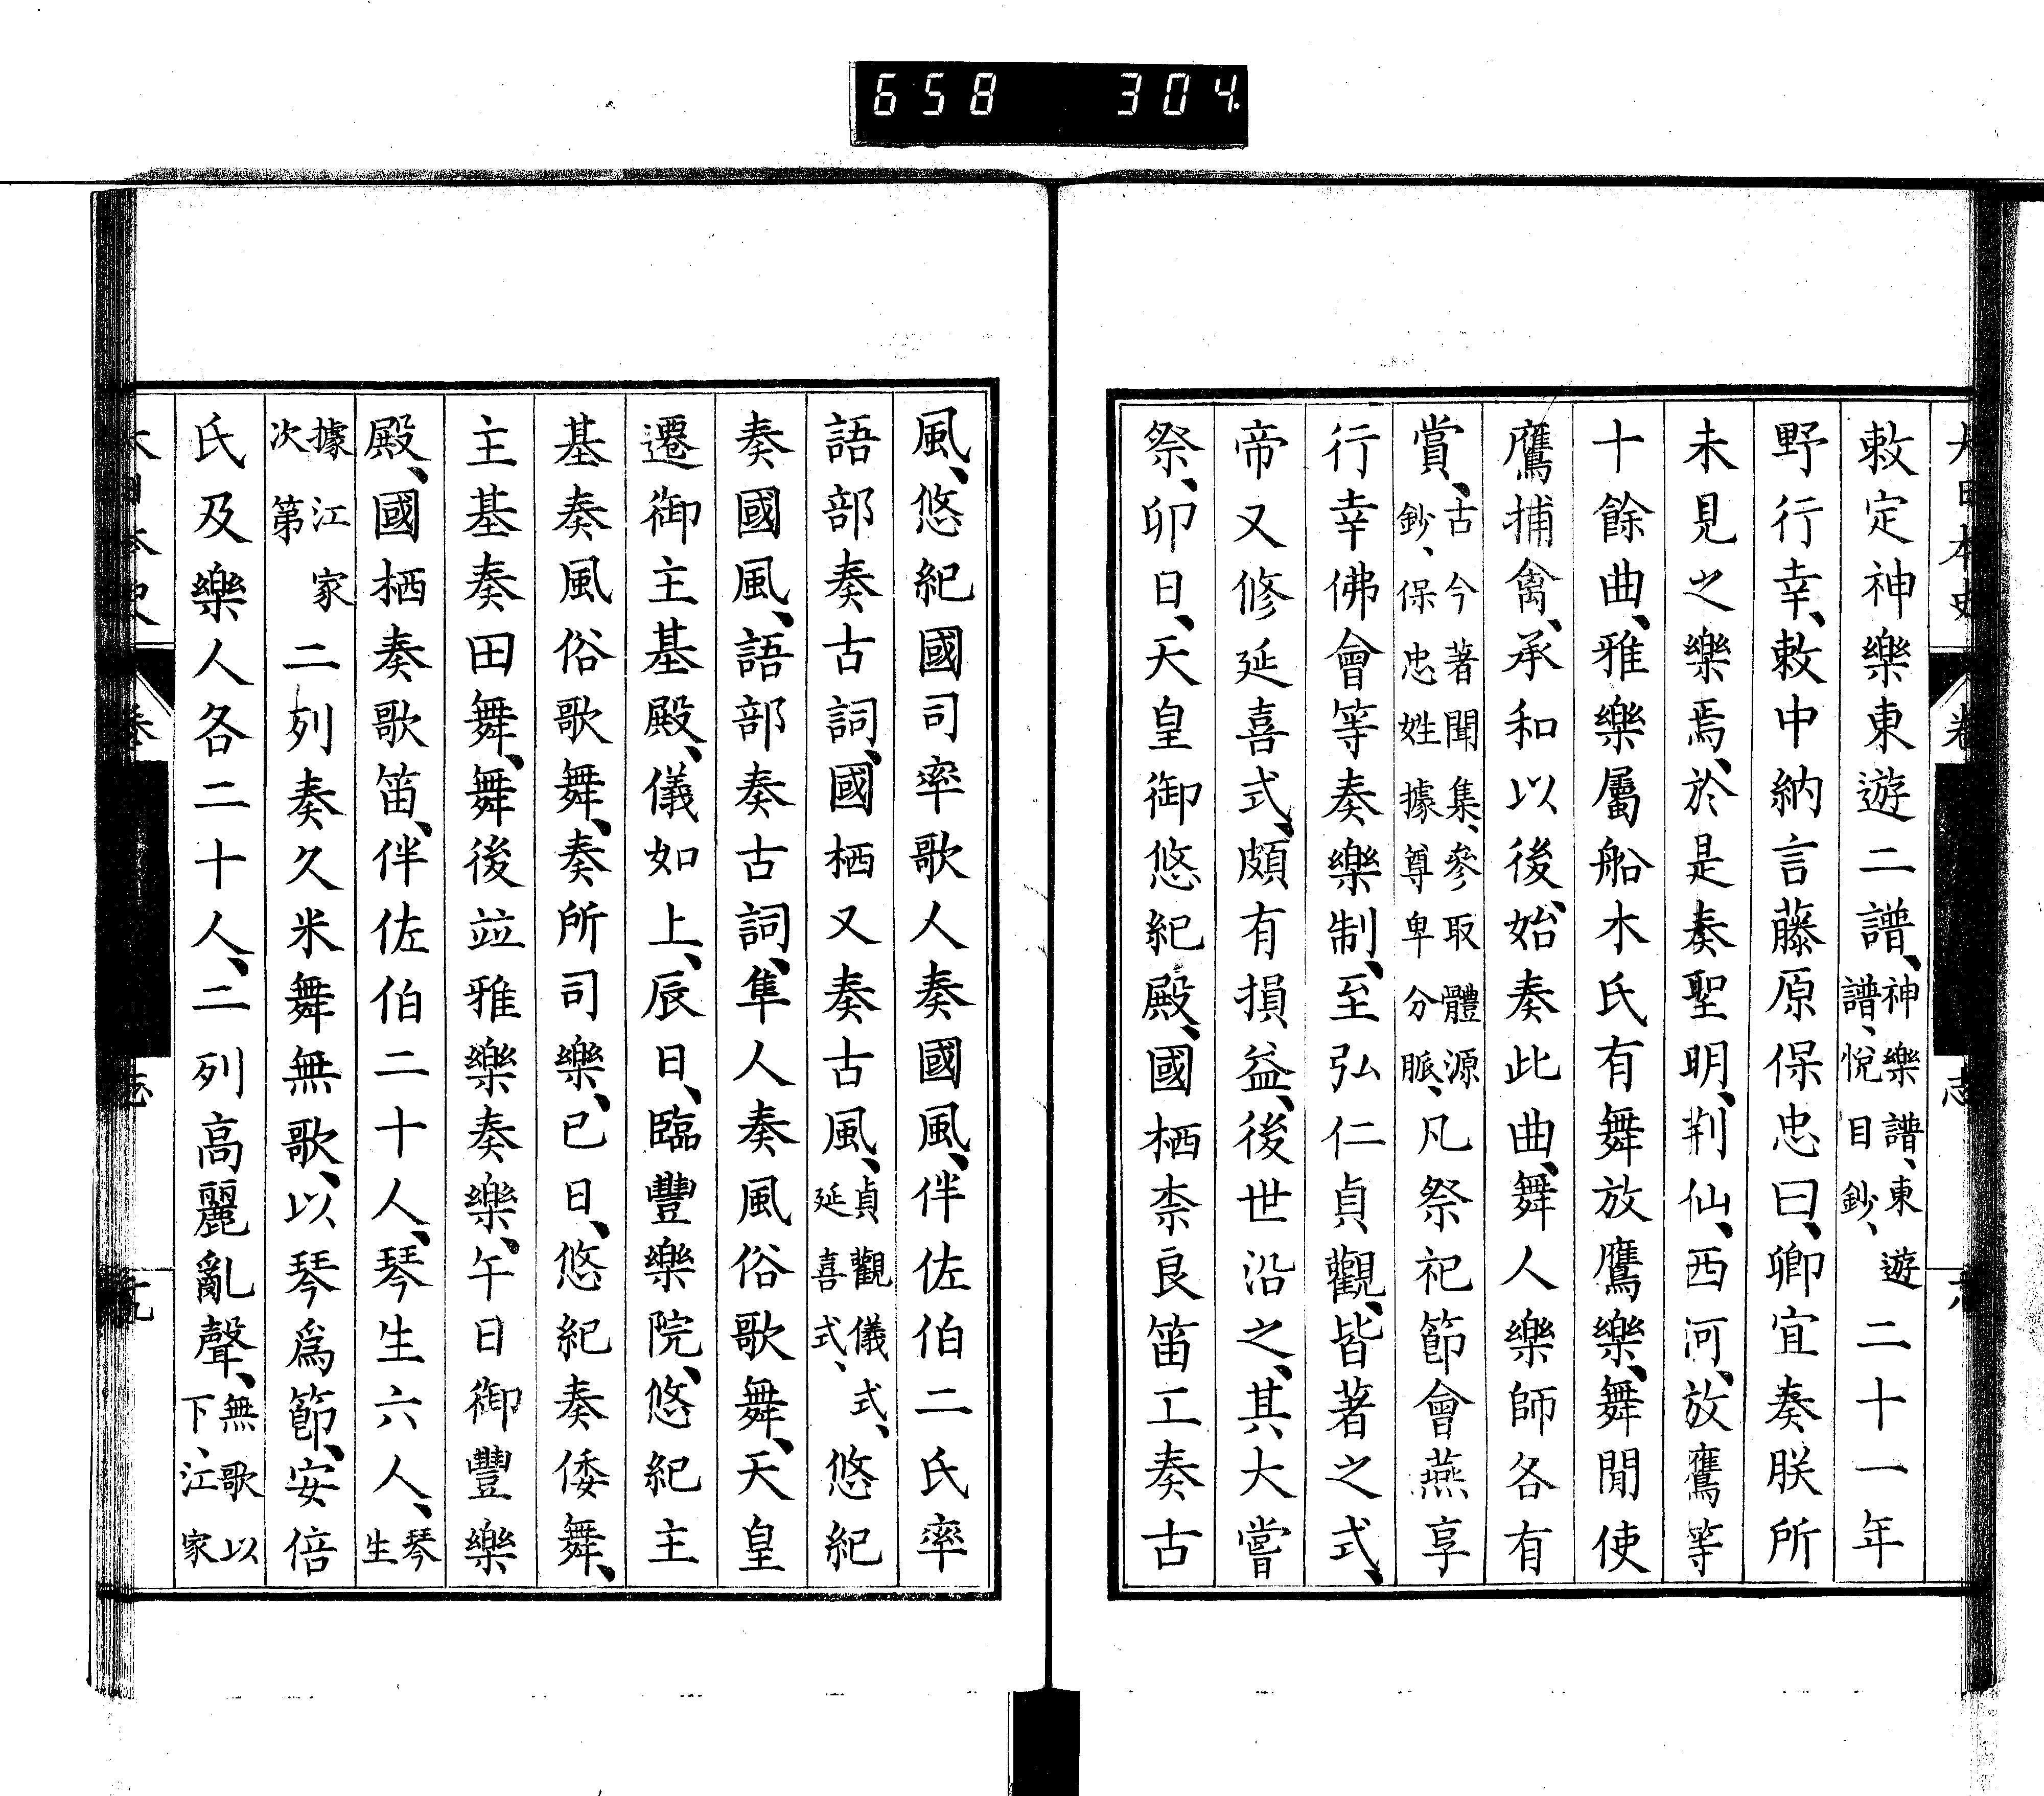 658 304
大日本史 卷 志
敕定神樂東遊二譜、神樂譜、東遊譜、悅目鈔、二十一年
野行幸、敕中納言藤原保忠曰、卿宜奏朕所
未見之樂焉、於是奏聖明、荆仙、西河、放鷹等
十餘曲、雅樂屬船木氏有舞放鷹樂、舞閒使
鷹捕禽、承和以後、始奏此曲、舞人樂師各有
賞、古今著聞集、參取體源鈔、保忠姓據尊卑分脈、凡祭祀節會燕享
行幸佛會等奏樂制、至弘仁貞觀、皆著之式、
帝又修延喜式、頗有損益、後世沿之、其大嘗
祭、卯日、天皇御悠紀殿、國栖柰良笛工奏古
風、悠紀國司率歌人奏國風、伴佐伯二氏率
語部奏古詞、國栖又奏古風、貞觀儀式、延喜式、悠紀
奏國風、語部奏古詞、隼人奏風俗歌舞、天皇
遷御主基殿、儀如上、辰日、臨豐樂院、悠紀主
基奏風俗歌舞、奏所司樂、已日、悠紀奏倭舞、
主基奏田舞、舞後竝雅樂奏樂、午日御豐樂
殿、國栖奏歌笛、伴佐伯二十人、琴生六人、琴生
據江家次第二列奏久米舞無歌、以琴爲節、安倍
氏及樂人各二十人、二列高麗亂聲、無歌以下、江家
大日本史 卷 志